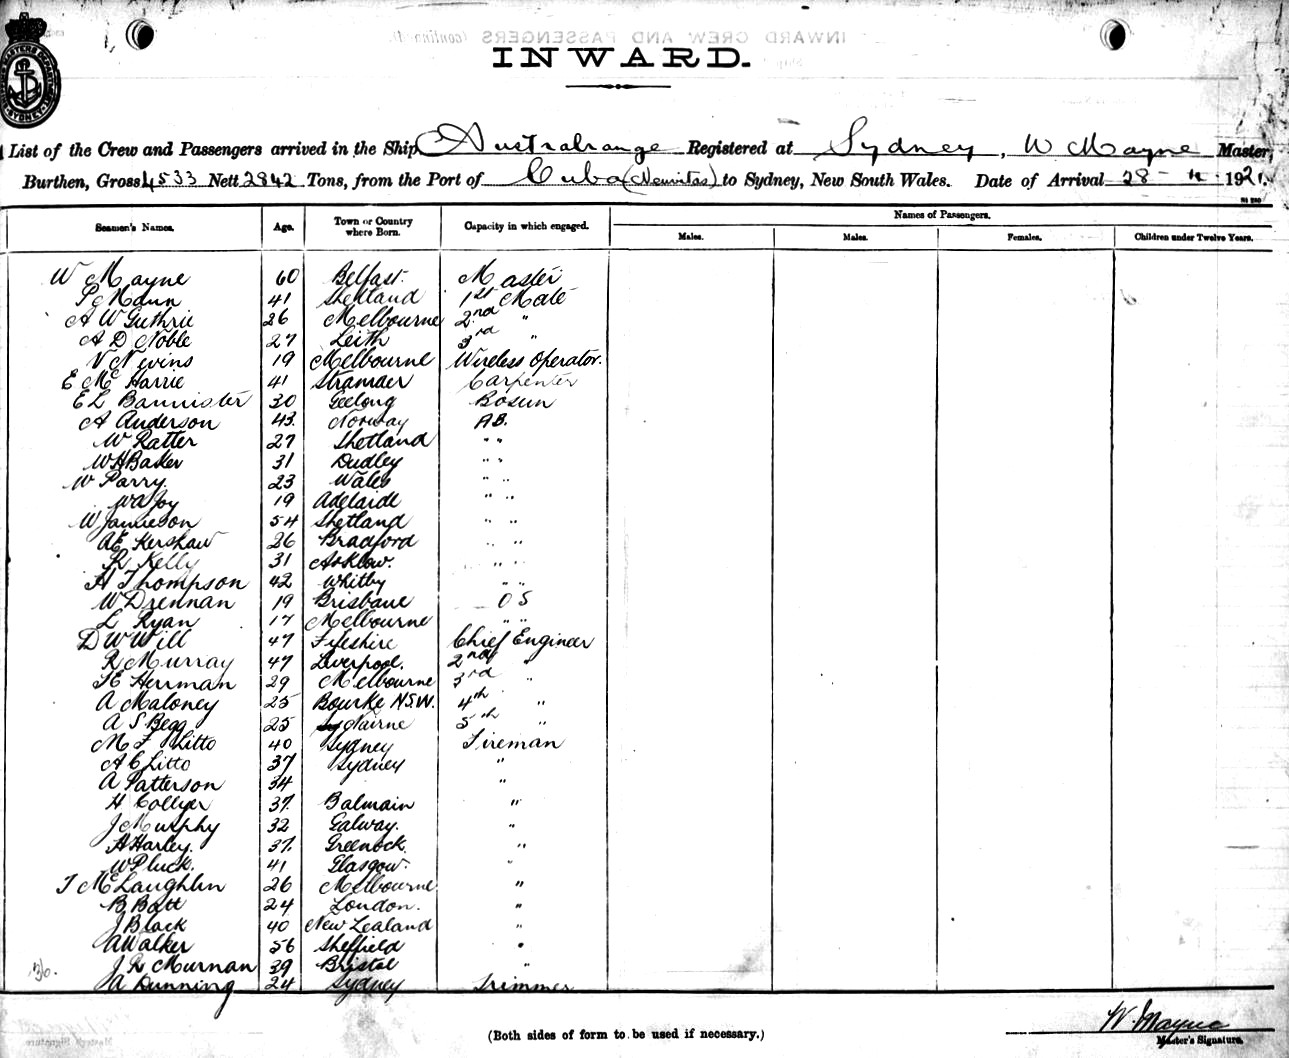 INWARD.
List of the Crew and Passengers arrived in the Ship Australrange Registered at Sydney, W Mayne Master,
Burthen, Gross 4533 Nett 2842 Tons, from the Port of Cuba (Nuevitas) to Sydney, New South Wales. Date of Arrival 28 - 4 - 1921.
Seamen's Names. Age. Town or Country where Born. Capacity in which engaged. Names of Passengers.
Males. Males. Females. Children under Twelve Years.
W Mayne 60 Belfast. Master
P Mann 41 Shetland 1st Mate
A W Guthrie 26 Melbourne 2nd "
A D Noble 27 Leith 3rd "
V Nevins 19 Melbourne Wireless Operator.
E McHarrie 41 Stranraer Carpenter
E L Bannister 30 Geelong Bosun
A Anderson 43. Norway AB.
W Ratter 27 Shetland " "
W H Baker 31 Dudley " "
W Parry. 23 Wales " "
W A Joy 19 Adelaide " "
W Jamieson 54 Shetland " "
A E Kershaw 26 Bradford " "
R Kelly 31 Arklow. " "
H Thompson 42 Whitby " "
W Drennan 19 Brisbane O S
L Ryan 17 Melbourne " "
D W Will 47 Fifeshire Chief Engineer
R Murray 47 Liverpool. 2nd "
Herrman 29 Melbourne 3rd "
A Maloney 25 Bourke NSW. 4th "
A S Begg 25 Nairne 5th "
M F Litto 40 Sydney Fireman
A C Litto 37 Sydney "
A Patterson 34 "
H Collyer 37. Balmain "
J Murphy 32 Galway. "
A Harley. 37. Greenock. "
W Pluck. 41 Glasgow. "
T McLaughlin 26 Melbourne "
B Batt 24 London. "
J Black 40 New Zealand "
A Walker 56 Sheffield "
J R Murnan 39 Bristol "
36.
A Dunning 24 Sydney Trimmer
W. Mayne
(Both sides of form to be used if necessary.)
Master's Signature.